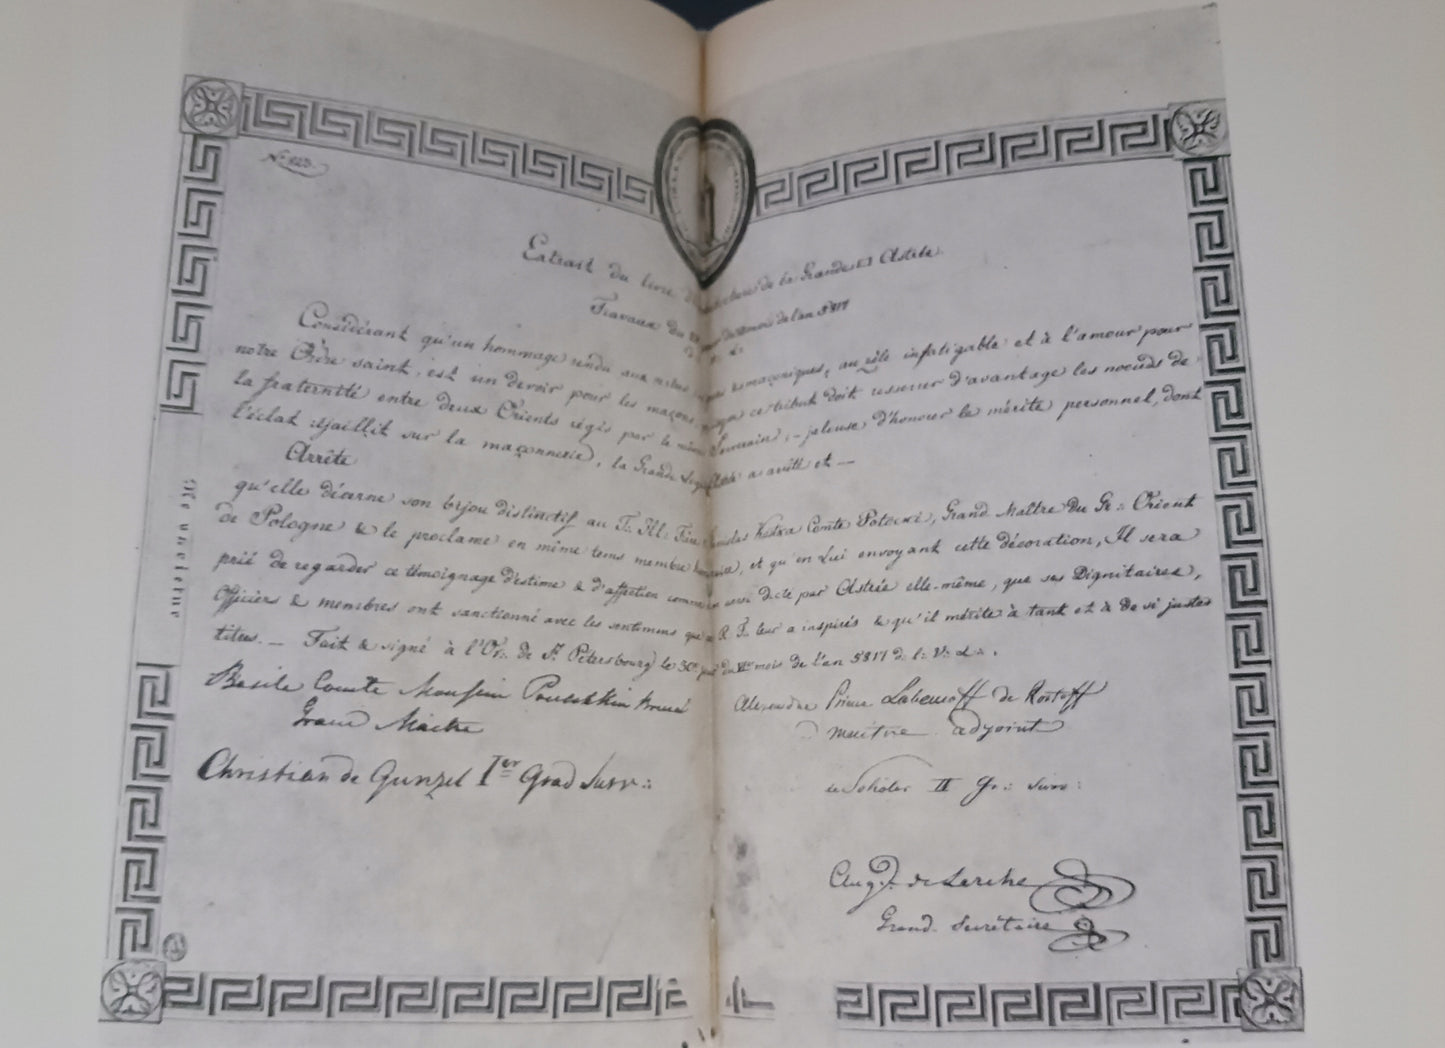 Extrait du livre d'architecture de la Grande □ Astrée
Travaux du mois de l'an 5817
Considérant qu'un hommage rendu aux maçoniques, au zèle infatigable et à l'amour pour
notre Ordre saint, est un devoir pour les maçons, ce tribut doit resserrer d'avantage les noeuds de
la fraternité entre deux Orients régis par le même Souverain; – jalouse d'honorer le mérite personnel, dont
l'éclat rejaillit sur la maçonnerie, la Grande Loge Astrée a arrêté et —
Arrête
qu'elle décerne son bijou distinctif au T. Ill. Frère Stanislas Kostka Comte Potocki, Grand Maître du Gr. Orient
de Pologne & le proclame en même tems membre honoraire, et qu'en Lui envoyant cette décoration, Il sera
prié de regarder ce témoignage d'estime & d'affection comme dicté par Astrée elle-même, que ses Dignitaires,
Officiers & membres ont sanctionné avec les sentimens que R. F. leur a inspirés & qu'il mérite à tant et à de si justes
titres. — Fait & signé à l'Or. de St. Pétersbourg le 30e jour du mois de l'an 5817 d. l. V. L.
Basile Comte Moussin Pouschkin
Grand Maître
Alexandre Prince Labanoff de Rostoff
maitre adjoint
Christian de Gunzel Ier Grad Surv.
II Gr. Surv.
Aug. de Lerche
Grand Secrétaire